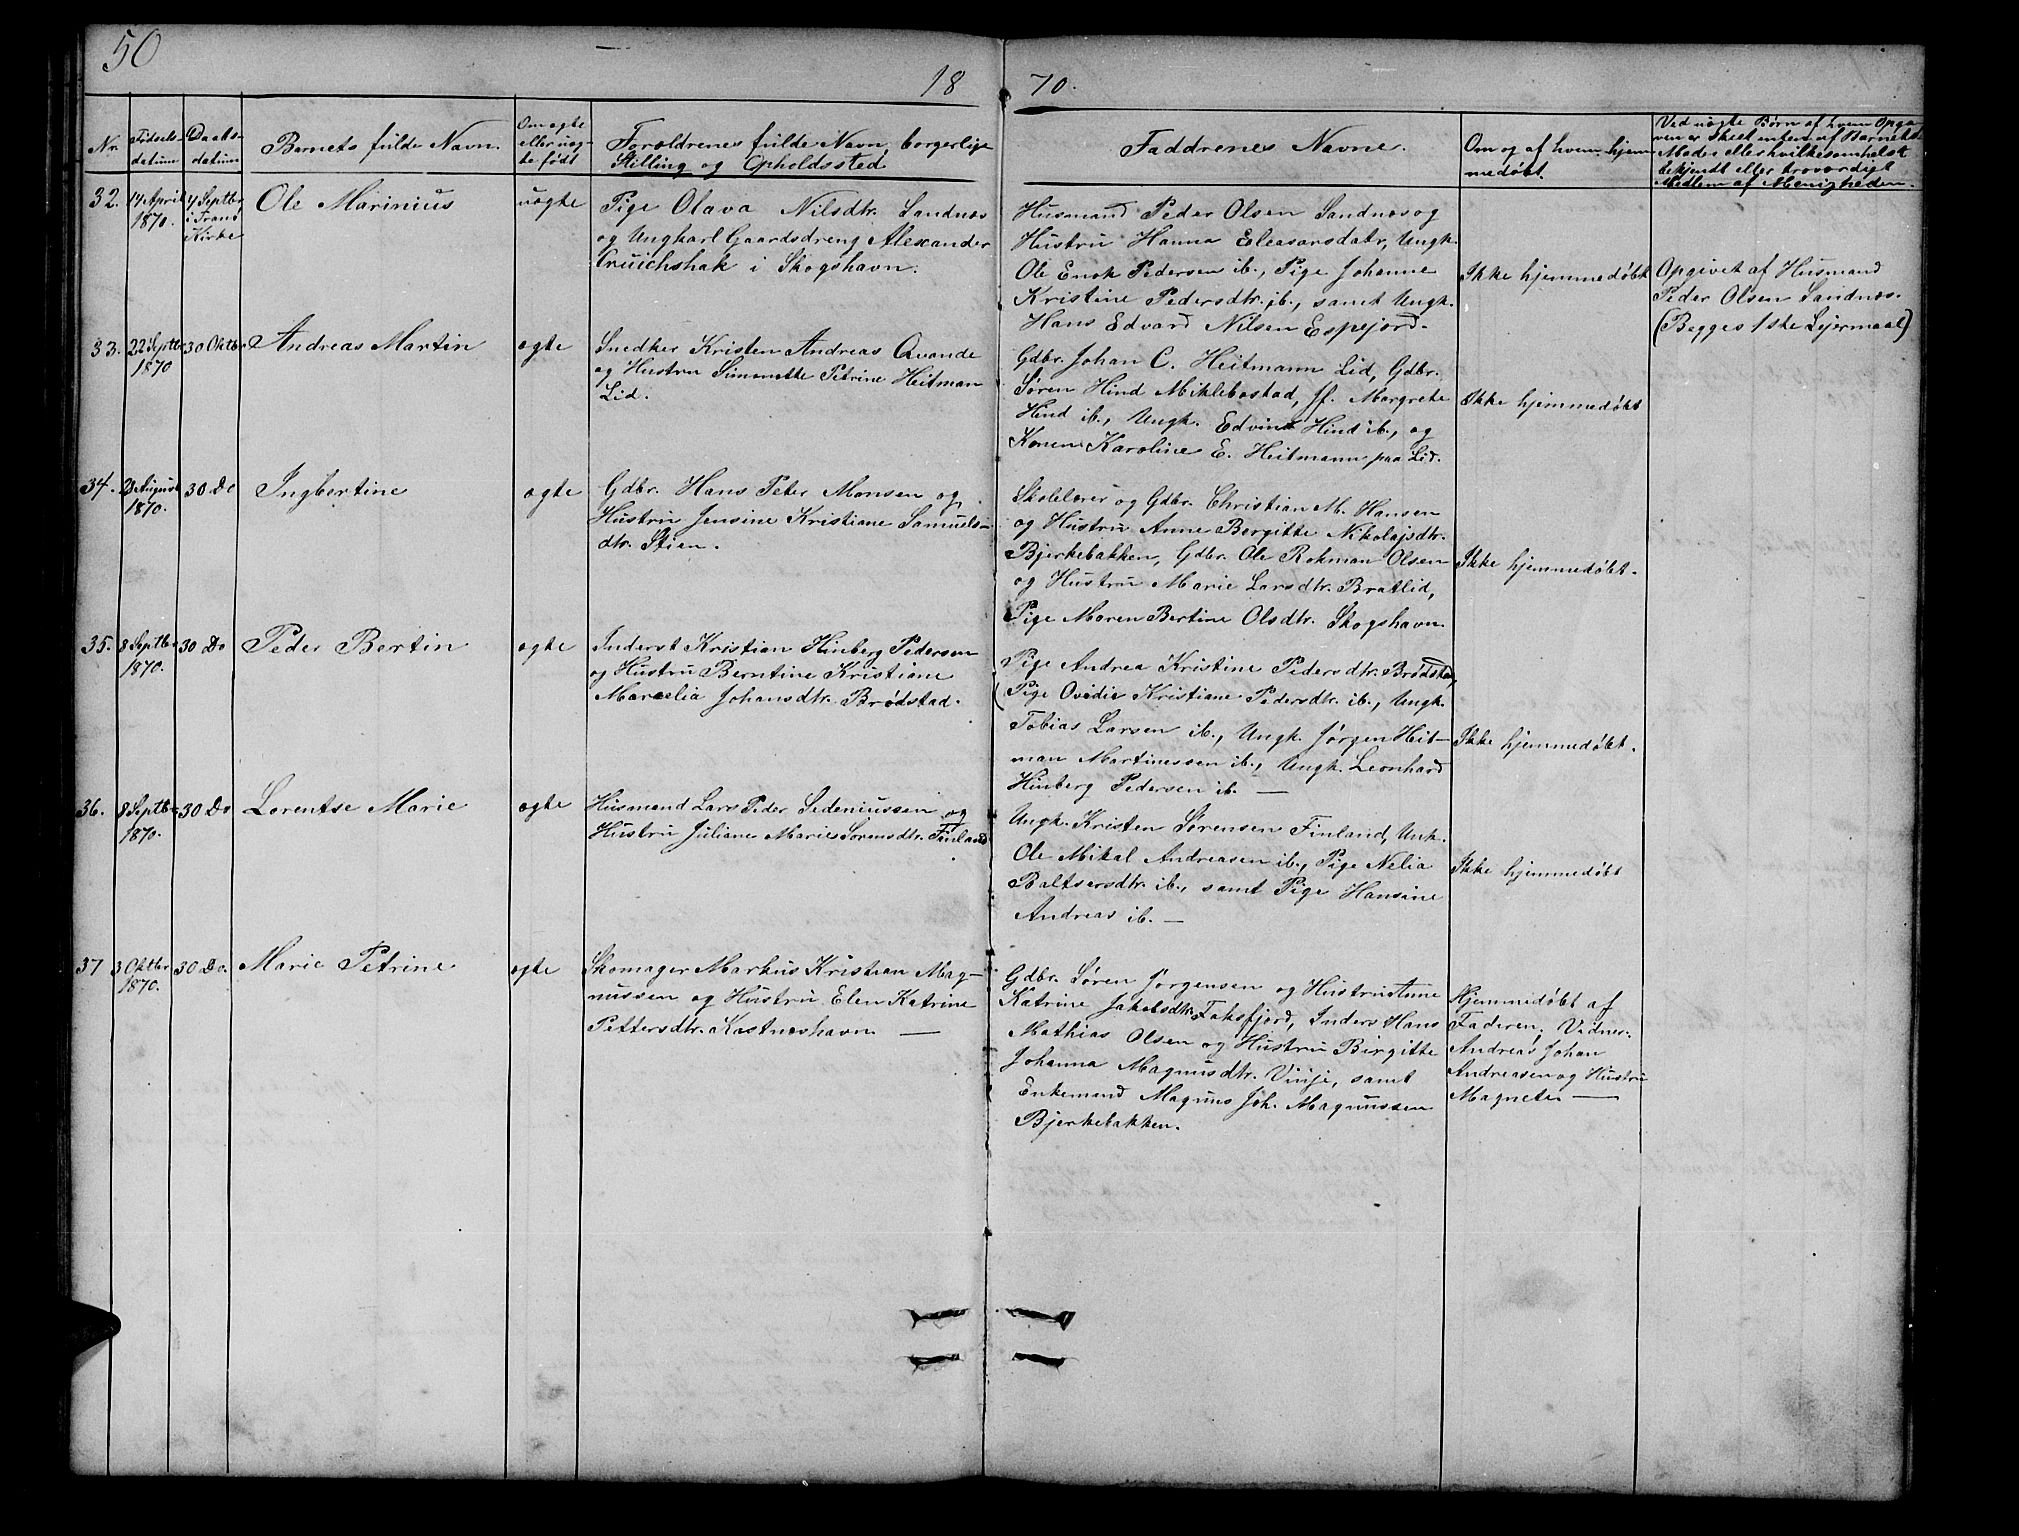 50
1870.
Nr.
Fødsels-
datum
Daabs-
datum
Barnets fulde Navn.
Om ægte
eller uæg-
te født
Forældrenes fulde Navn, borgerlige
Stilling og Opholdssted
Faddrenes Navne.
Om og af hvem hjem-
medøbt.
Ved uægte Børn af hvem Opga-
ven er skeet enten af Barnets
Moder eller hvilkesomhelst
bekjendt eller troværdigt
Medlem af Menigheden.
32.
17 April
1870.
4 Septbr
i Tranø
Kirke
Ole Marinius
uægte
Pige Olava Nilsdtr. Sandnæs
og Ungkarl Gaardsdreng Alexander
Cruichshak i Skogshavn.
Husmand Peder Olsen Sandnæs og
Hustru Hanna Eleasarsdatr, Ungk.
Ole Enok Pedersen ib., Pige Johanne
Kristine Pedersdtr. ib., samt Ungk.
Hans Edvard Nilsen Espejord.
Ikke hjemmedøbt
Opgivet af Husmand
Peder Olsen Sandnæs.
(Begges 1ste Lejermaal)
33.
22 Septbr
1870
30 Oktbr
Andreas Martin
ægte
Snedker Kristen Andreas Qvande
og Hustru Simonette Petrine Heitman
Lid.
Gdbr. Johan C. Heitmann Lid, Gdbr.
Søren Hind Miklebostad, Jf. Margrete
Hind ib., Ungk. Edvind Hind ib., og
Konen Karoline E. Heitmann paa Lid.
Ikke hjemmedøbt
34.
August
1870.
30 Do
Ingbertine
ægte
Gdbr. Hans Peter Monsen og
Hustru Jensine Kristiane Samuels-
dtr. Stien.
Skolelærer og Gdbr. Christian M. Hansen
og Hustru Anne Bergitte Nikolajsdtr.
Bjerkebakken, Gdbr. Ole Rokman Olsen
og Hustru Marie Larsdtr. Bratlid,
Pige Maren Bertine Olsdtr. Skogshavn.
Ikke hjemmedøbt.
35.
8 Septbr
1870.
30 Do
Peder Bertin
ægte
Inderst Kristian Hinberg Pedersen
og Hustru Berntine Kristiane
Marcelia Johansdtr. Brødstad.
Pige Andrea Kristine Pedersdtr. Brødstad,
Pige Ovidie Kristiane Pedersdtr. ib., Ungk.
Tobias Larsen ib., Ungk. Jørgen Heit-
man Martinessen ib., Ungk. Leonhard
Hinberg Pedersen ib. —
Ikke hjemmedøbt.
36.
8 Septbr
1870.
30 Do
Lorentse Marie
ægte
Husmand Lars Peder Sedeniussen og
Hustru Juliane Marie Sørensdtr. Finland
Ungk. Kristen Sørensen Finland, Unk.
Ole Mikal Andreasen ib., Pige Nelia
Baltsersdtr. ib., samt Pige Hansine
Andreas ib. —
Ikke hjemmedøbt
37
3 Oktbr
1870.
30 Do.
Marie Petrine
ægte
Skomager Markus Kristian Mag-
nussen og Hustru Elen Katrine
Pettersdtr. Kastneshavn —
Gdbr. Søren Jørgensen og Hustru Anne
Katrine Jakobsdtr. Faksfjord, Inders Hans
Mathias Olsen og Hustru Birgitte
Johanna Magnusdtr. Vinje, samt
Enkemand Magnus Joh. Magnussen
Bjerkebakken.
Hjemmedøbt af
Faderen; Vidner
Andreas Johan
Andreasen og Hustru
Magnete —